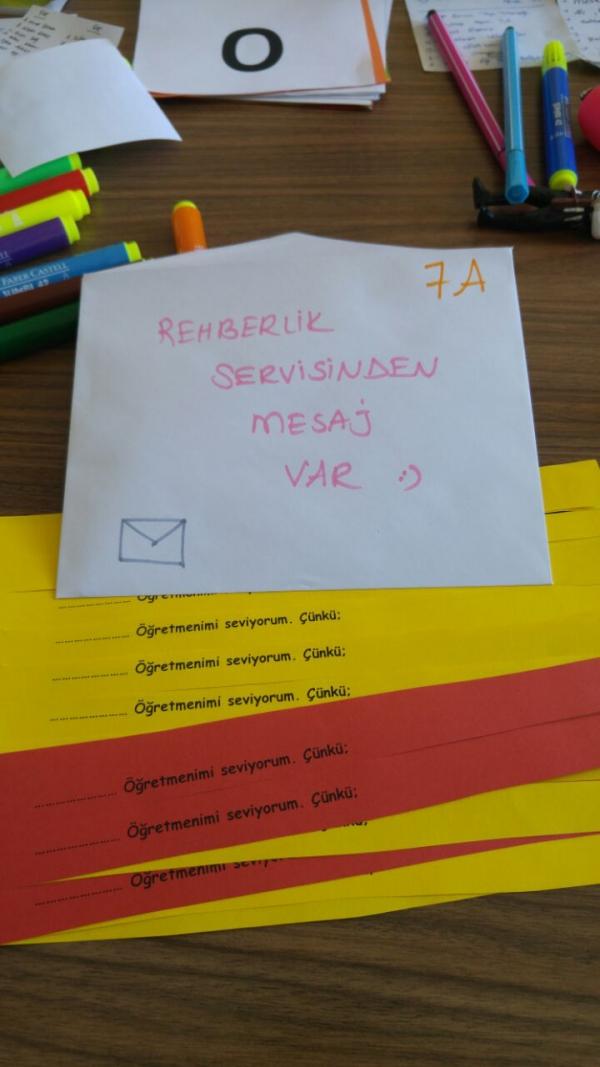 O
FABER-CASTELL
7A
REHBERLİK
SERVİSİNDEN
MESAJ
VAR :)
Öğretmenimi
.................... Öğretmenimi seviyorum. Çünkü;
.................... Öğretmenimi seviyorum. Çünkü;
.................... Öğretmenimi seviyorum. Çünkü;
.................... Öğretmenimi seviyorum. Çünkü;
.................... Öğretmenimi seviyorum. Çünkü;
.................... Öğretmenimi